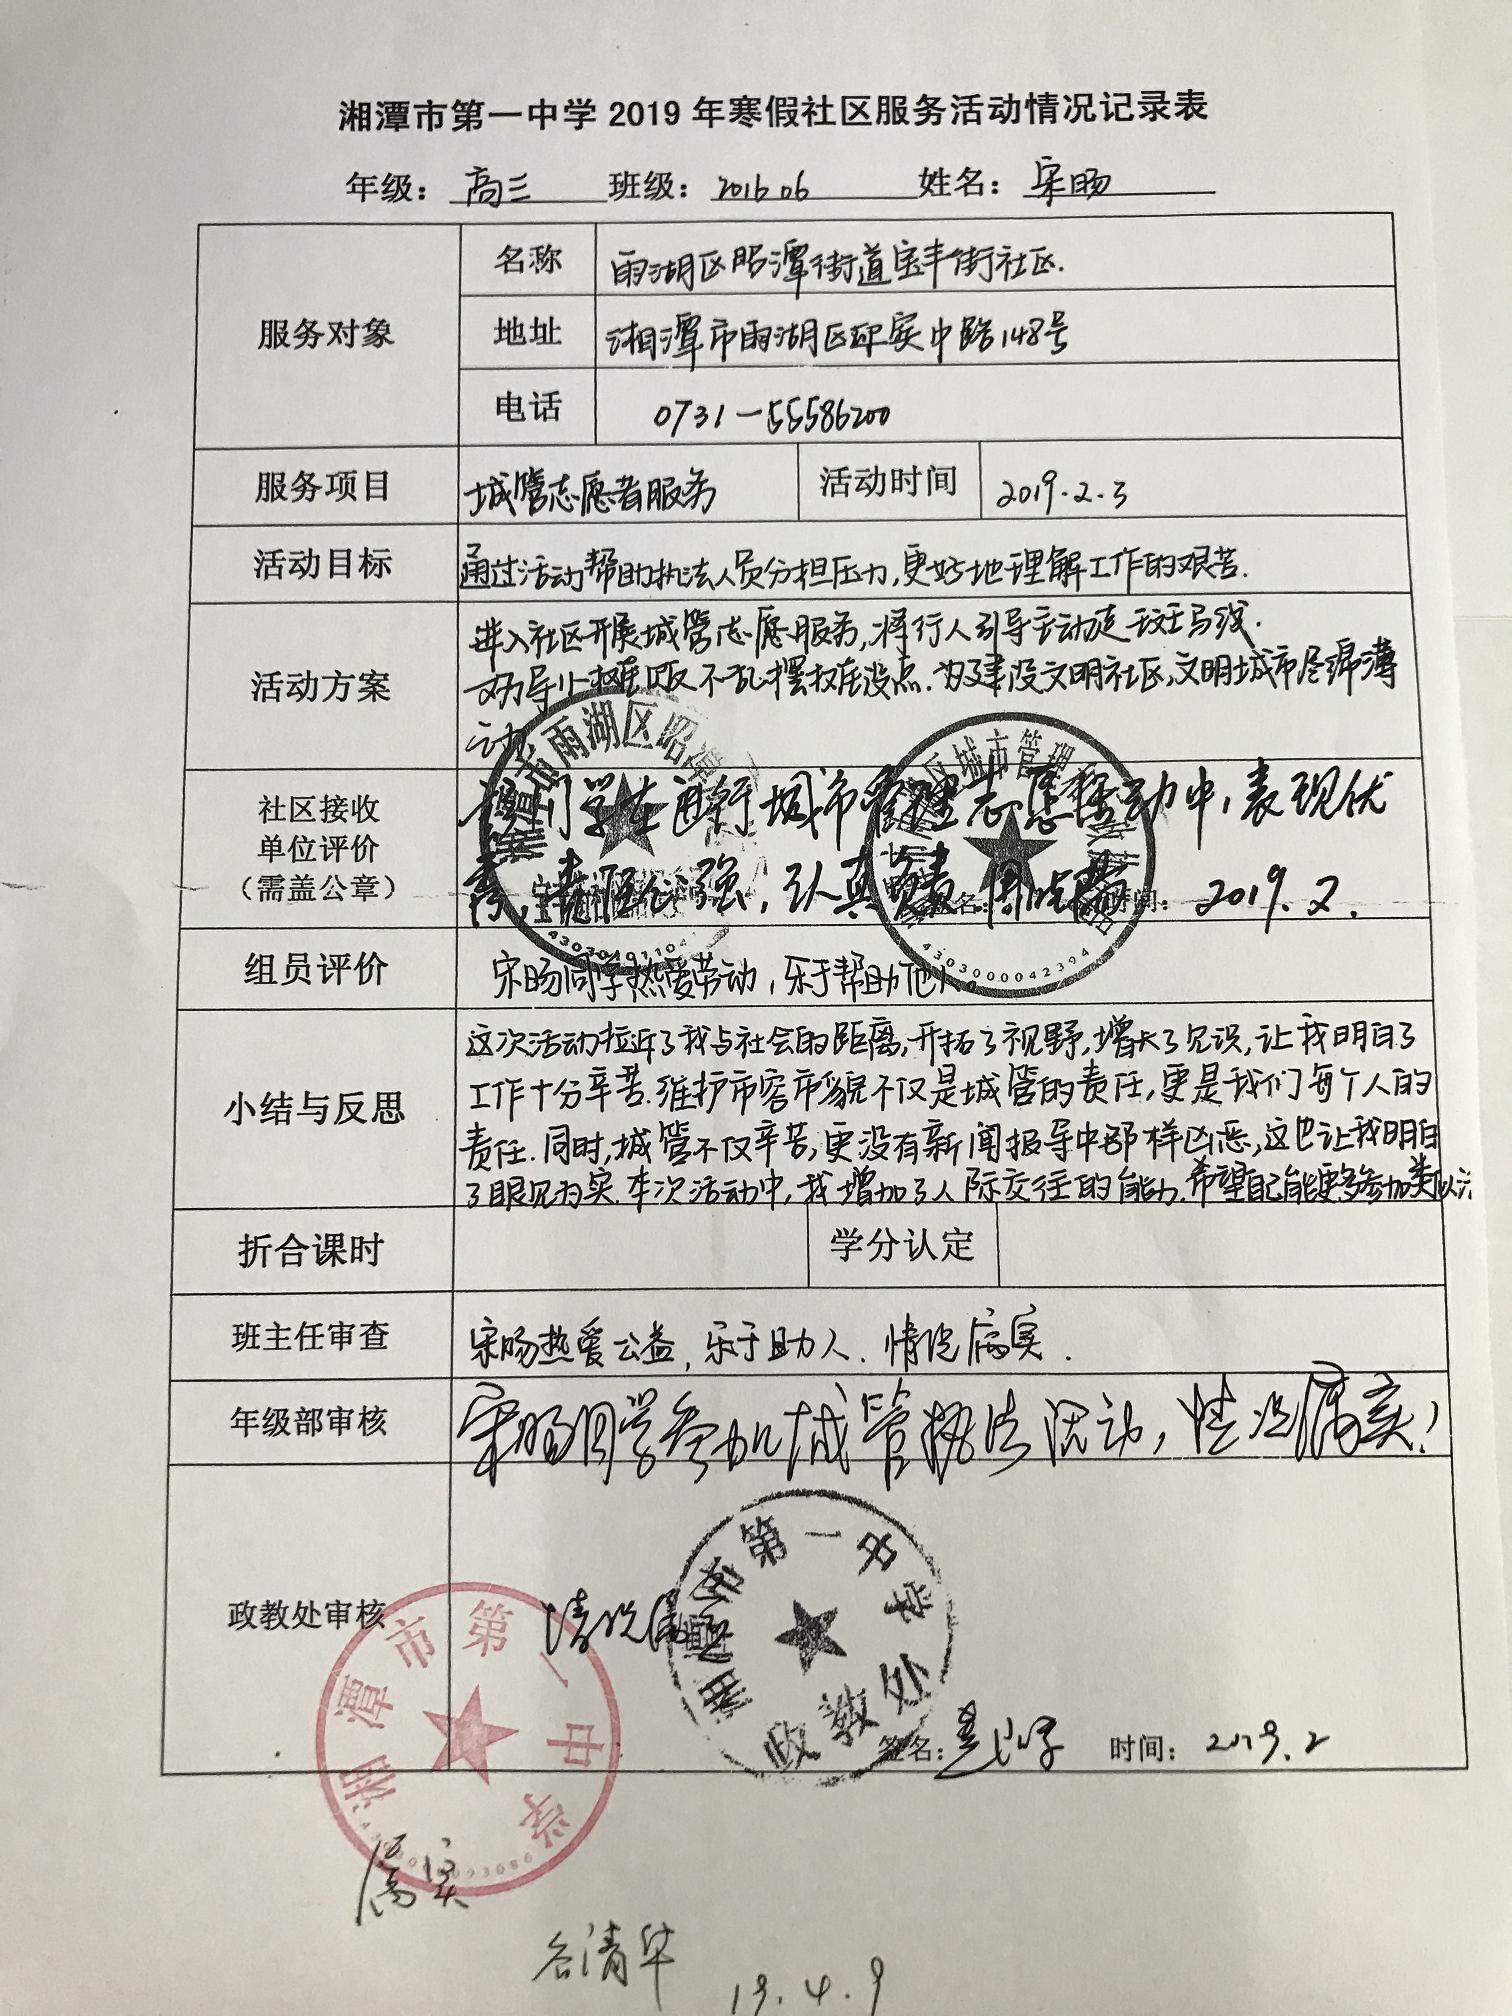 湘潭市第一中学 2019 年寒假社区服务活动情况记录表
年级：高三 班级：201606 姓名：宋旸
服务对象 名称 雨湖区昭潭街道宝丰街社区.
地址 湘潭市雨湖区迎宾中路148号
电话 0731-55586200
服务项目 城管志愿者服务 活动时间 2019.2.3
活动目标 通过活动帮助执法人员分担压力,更好地理解工作的艰苦.
活动方案 进入社区开展城管志愿服务,将行人引导主动走斑马线.
劝导小摊贩不乱摆摊设点.为建设文明社区,文明城市尽绵薄
之力
社区接收
单位评价
（需盖公章）
同学在通行城市管理志愿活动中,表现优
秀,责任心强,认真负责. 时间：2019.2.
组员评价 宋旸同学热爱劳动,乐于帮助他人.
小结与反思 这次活动拉近了我与社会的距离,开拓了视野,增长了见识,让我明白了
工作十分辛苦.维护市容市貌不仅是城管的责任,更是我们每个人的
责任.同时,城管不仅辛苦,更没有新闻报导中那样凶恶,这也让我明白
了眼见为实.本次活动中,我增加了人际交往的能力.希望自己能更多参加类似
折合课时 学分认定
班主任审查 宋旸热爱公益,乐于助人.情况属实.
年级部审核 宋旸同学参加城管执法活动,情况属实!
政教处审核 情况属实
签名： 时间：2019.2
湘潭市雨湖区昭潭
区城市管理
4303000042394
市第一中学
政教处
湘潭市第一中学
属实
谷清华
19.4.9